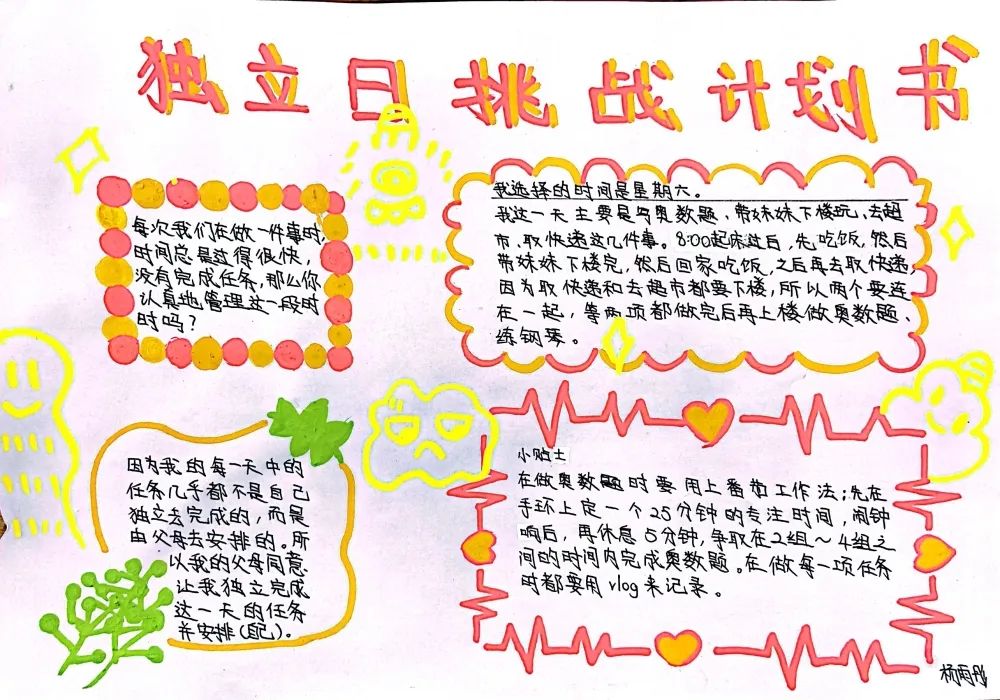 独立日挑战计划书
每次我们在做一件事时,
时间总是过得很快,
没有完成任务,那么你
认真地管理这一段时
时吗?
我选择的时间是星期六。
我这一天主要是写奥数题、带妹妹下楼玩、去超
市、取快递这几件事。8:00起床过后,先吃饭,然后
带妹妹下楼完,然后回家吃饭,之后再去取快递,
因为取快递和去超市都要下楼,所以两个要连
在一起,等两项都做完后再上楼做奥数题、
练钢琴。
因为我的每一天中的
任务几乎都不是自己
独立去完成的,而是
由父母去安排的。所
以我的父母同意
让我独立完成
这一天的任务
并安排(自己)。
小贴士
在做奥数题时要用上番茄工作法;先在
手环上定一个25分钟的专注时间,闹钟
响后,再休息5分钟,争取在2组~4组之
间的时间内完成奥数题。在做每一项任务
时都要用vlog来记录。
杨雨